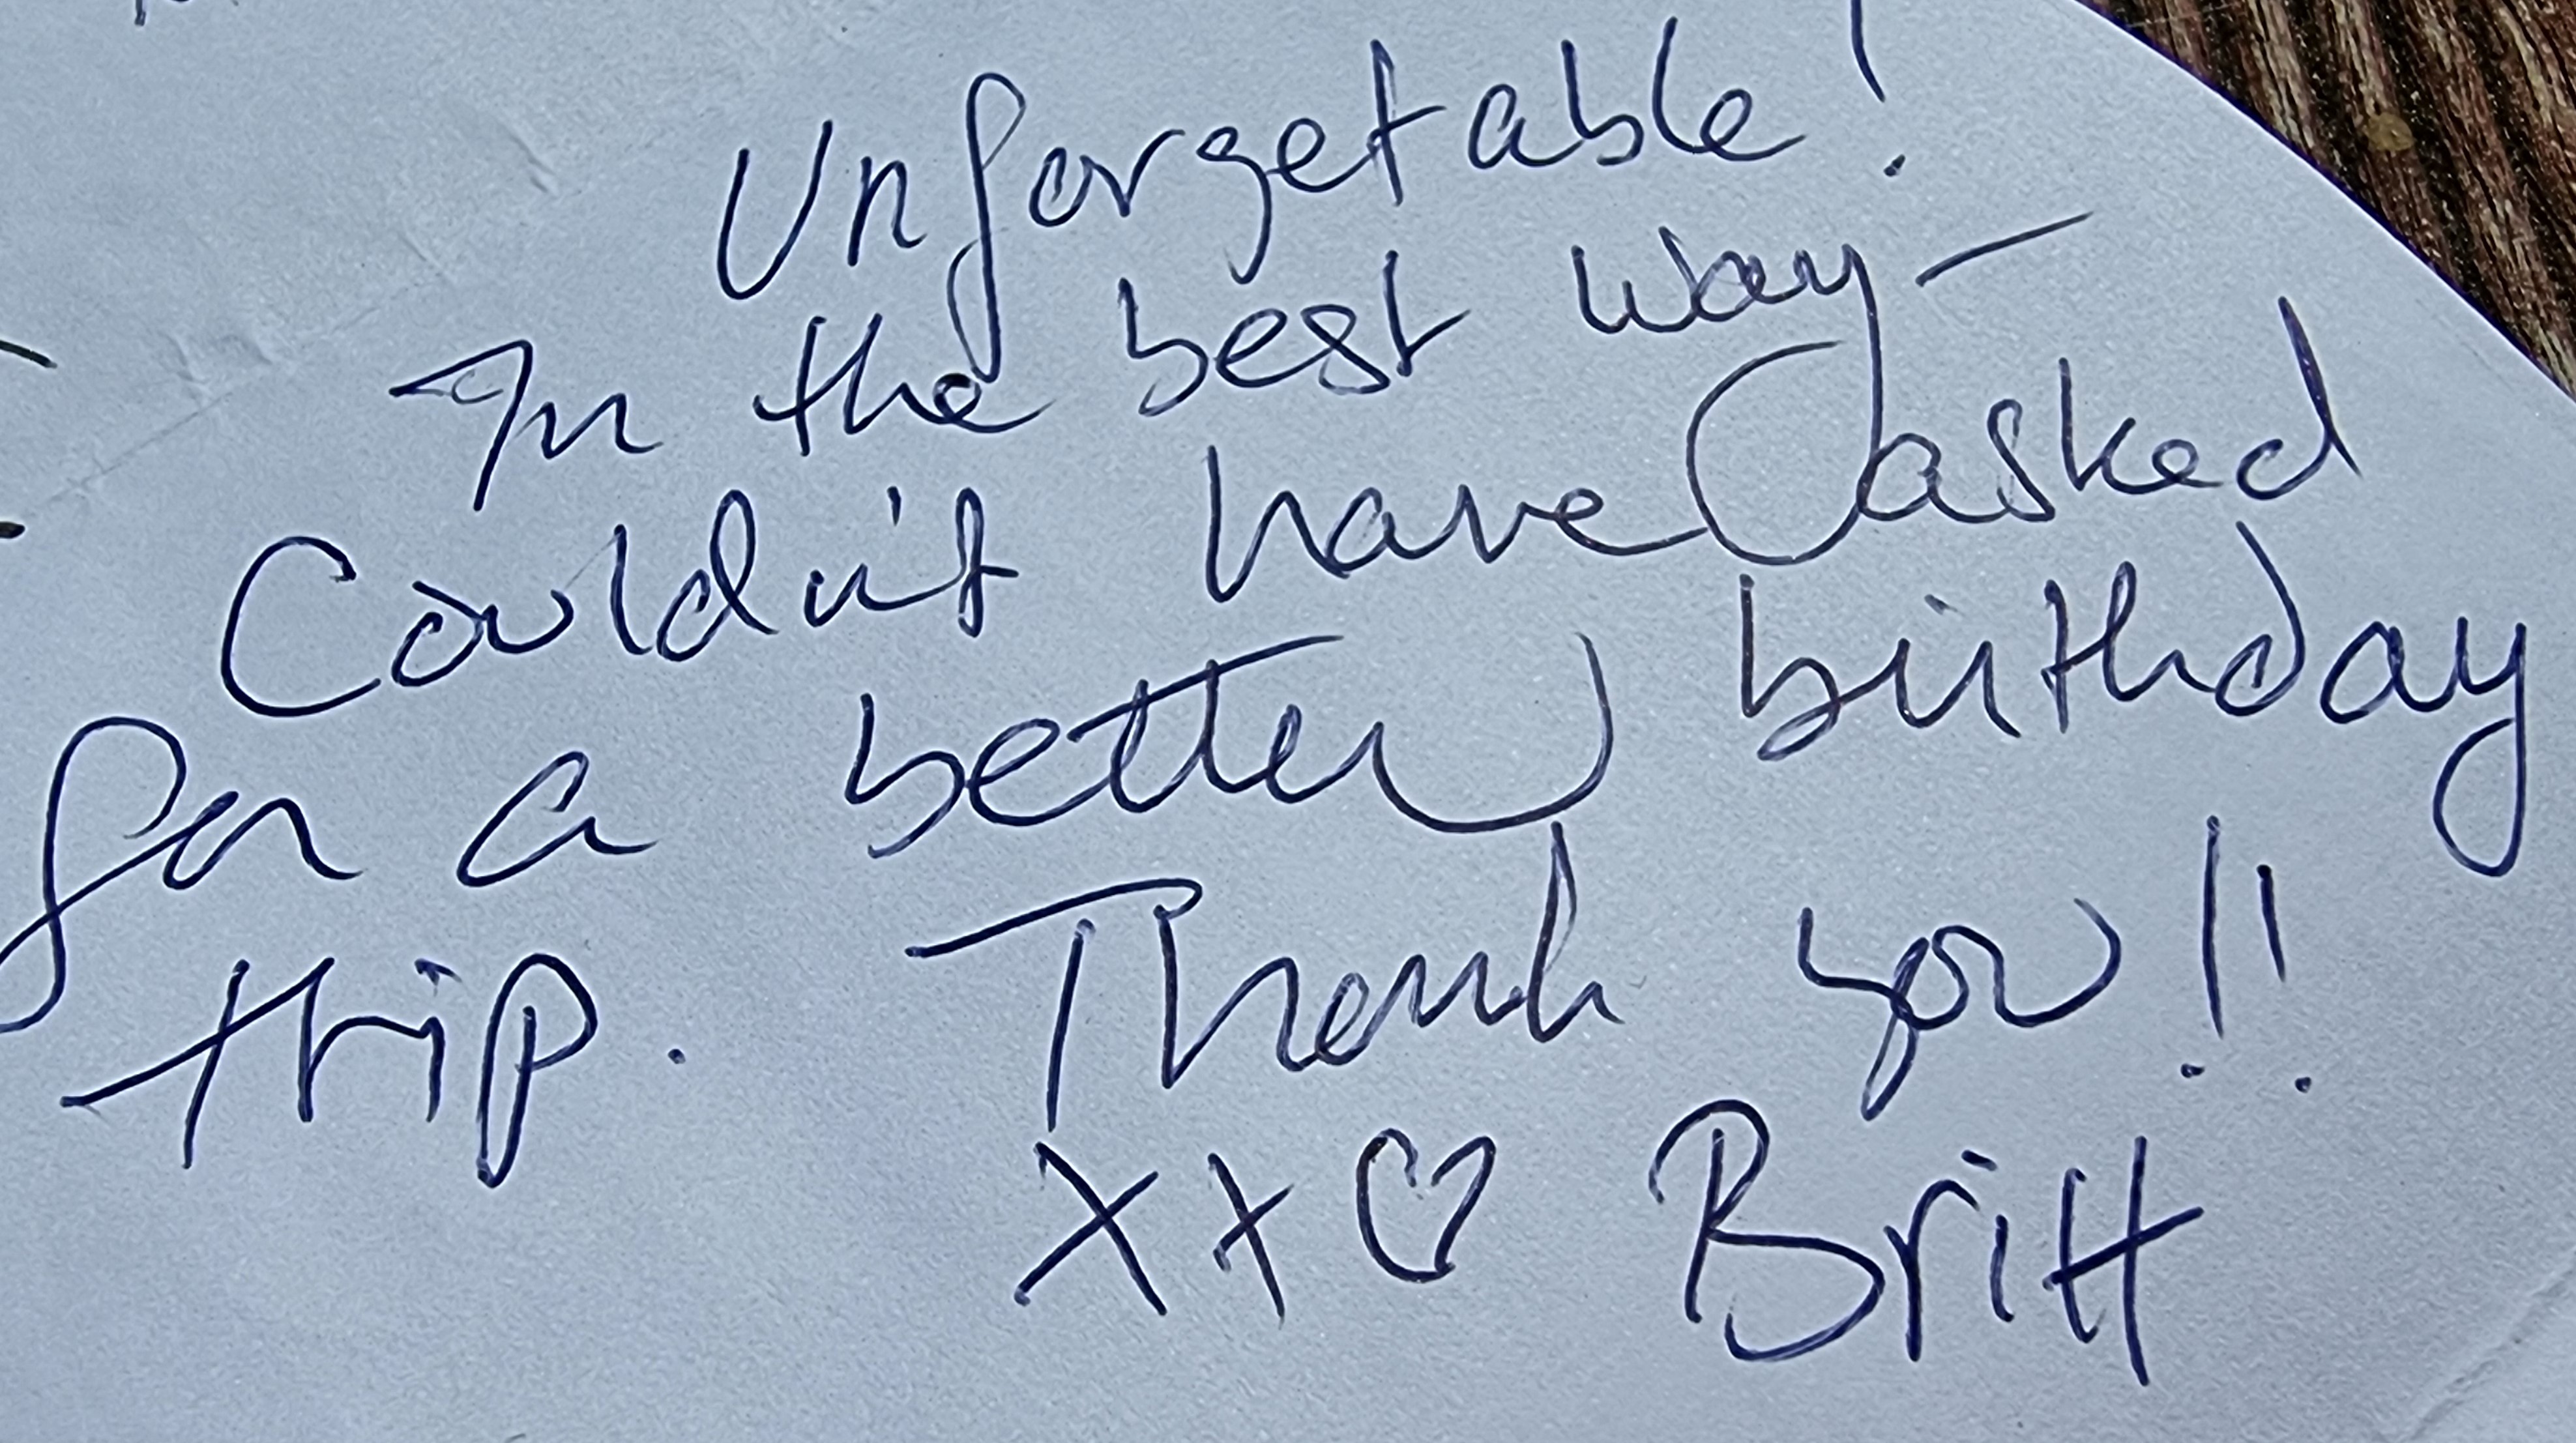 Unforgetable!
In the best way —
Couldn't have asked
for a better birthday
trip. Thank you!!
xx ♡ Britt